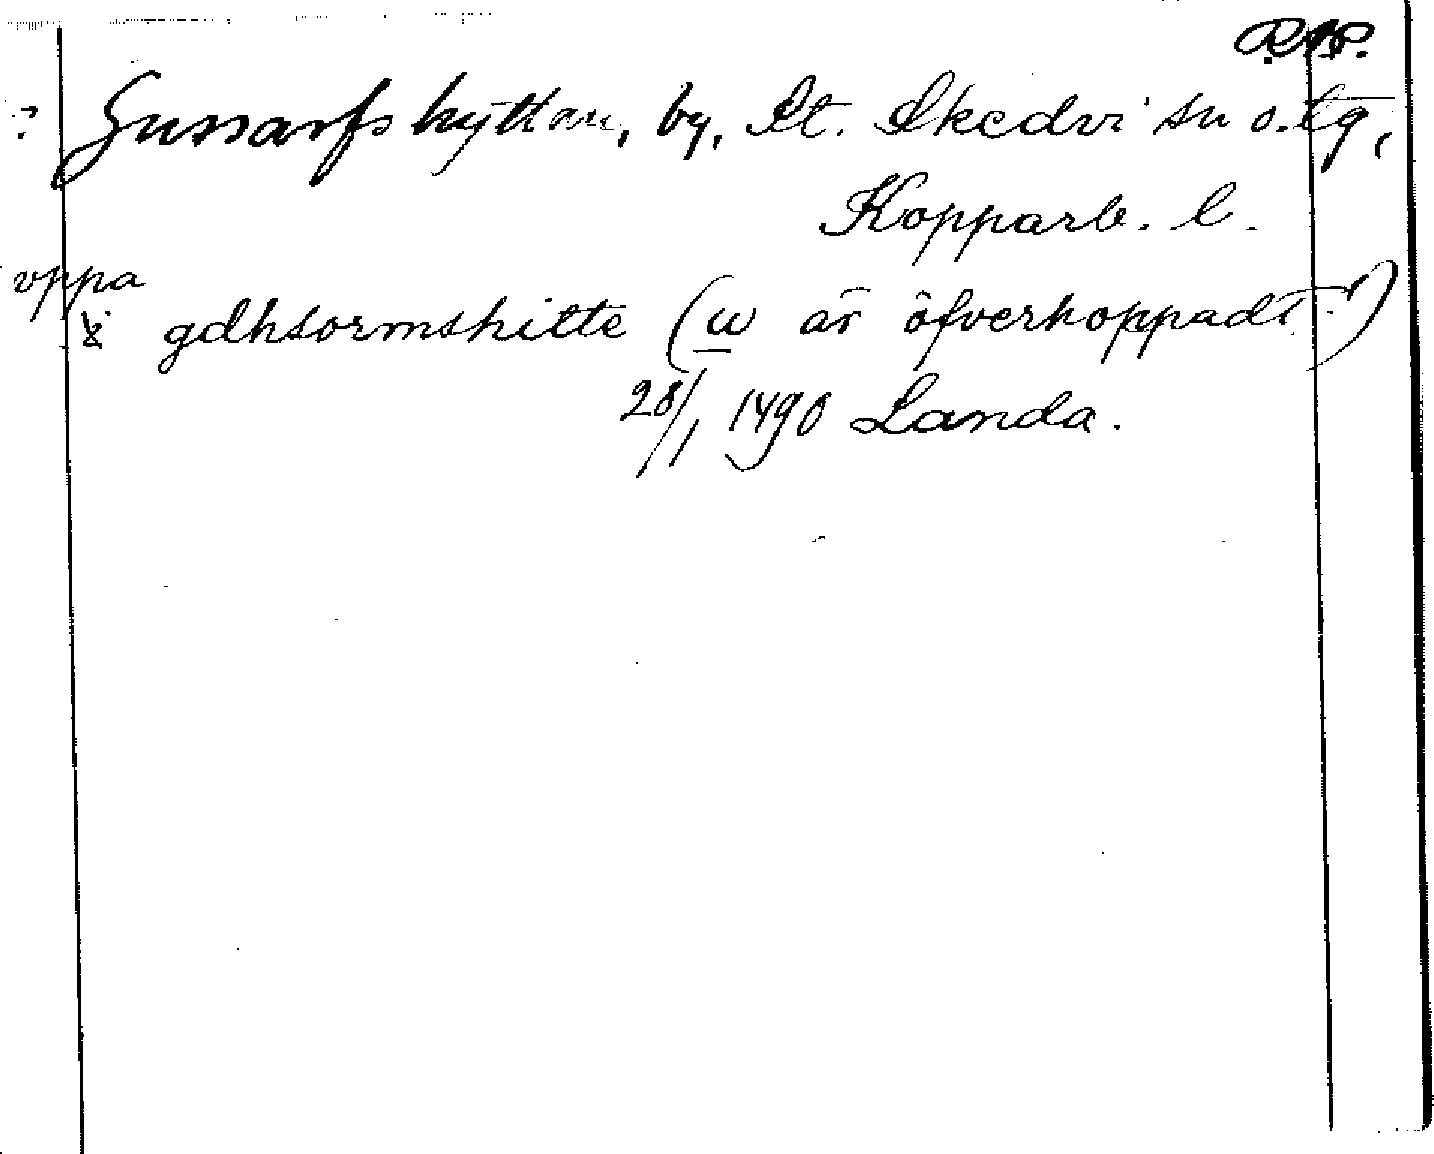 R.A.P.
? Gussarfshyttan, by, St. Skedvi sn o. tg,
Kopparb. l.
vppa
gdhsormshitte (w är öfverhoppadt!)
28/1 1490 Landa.